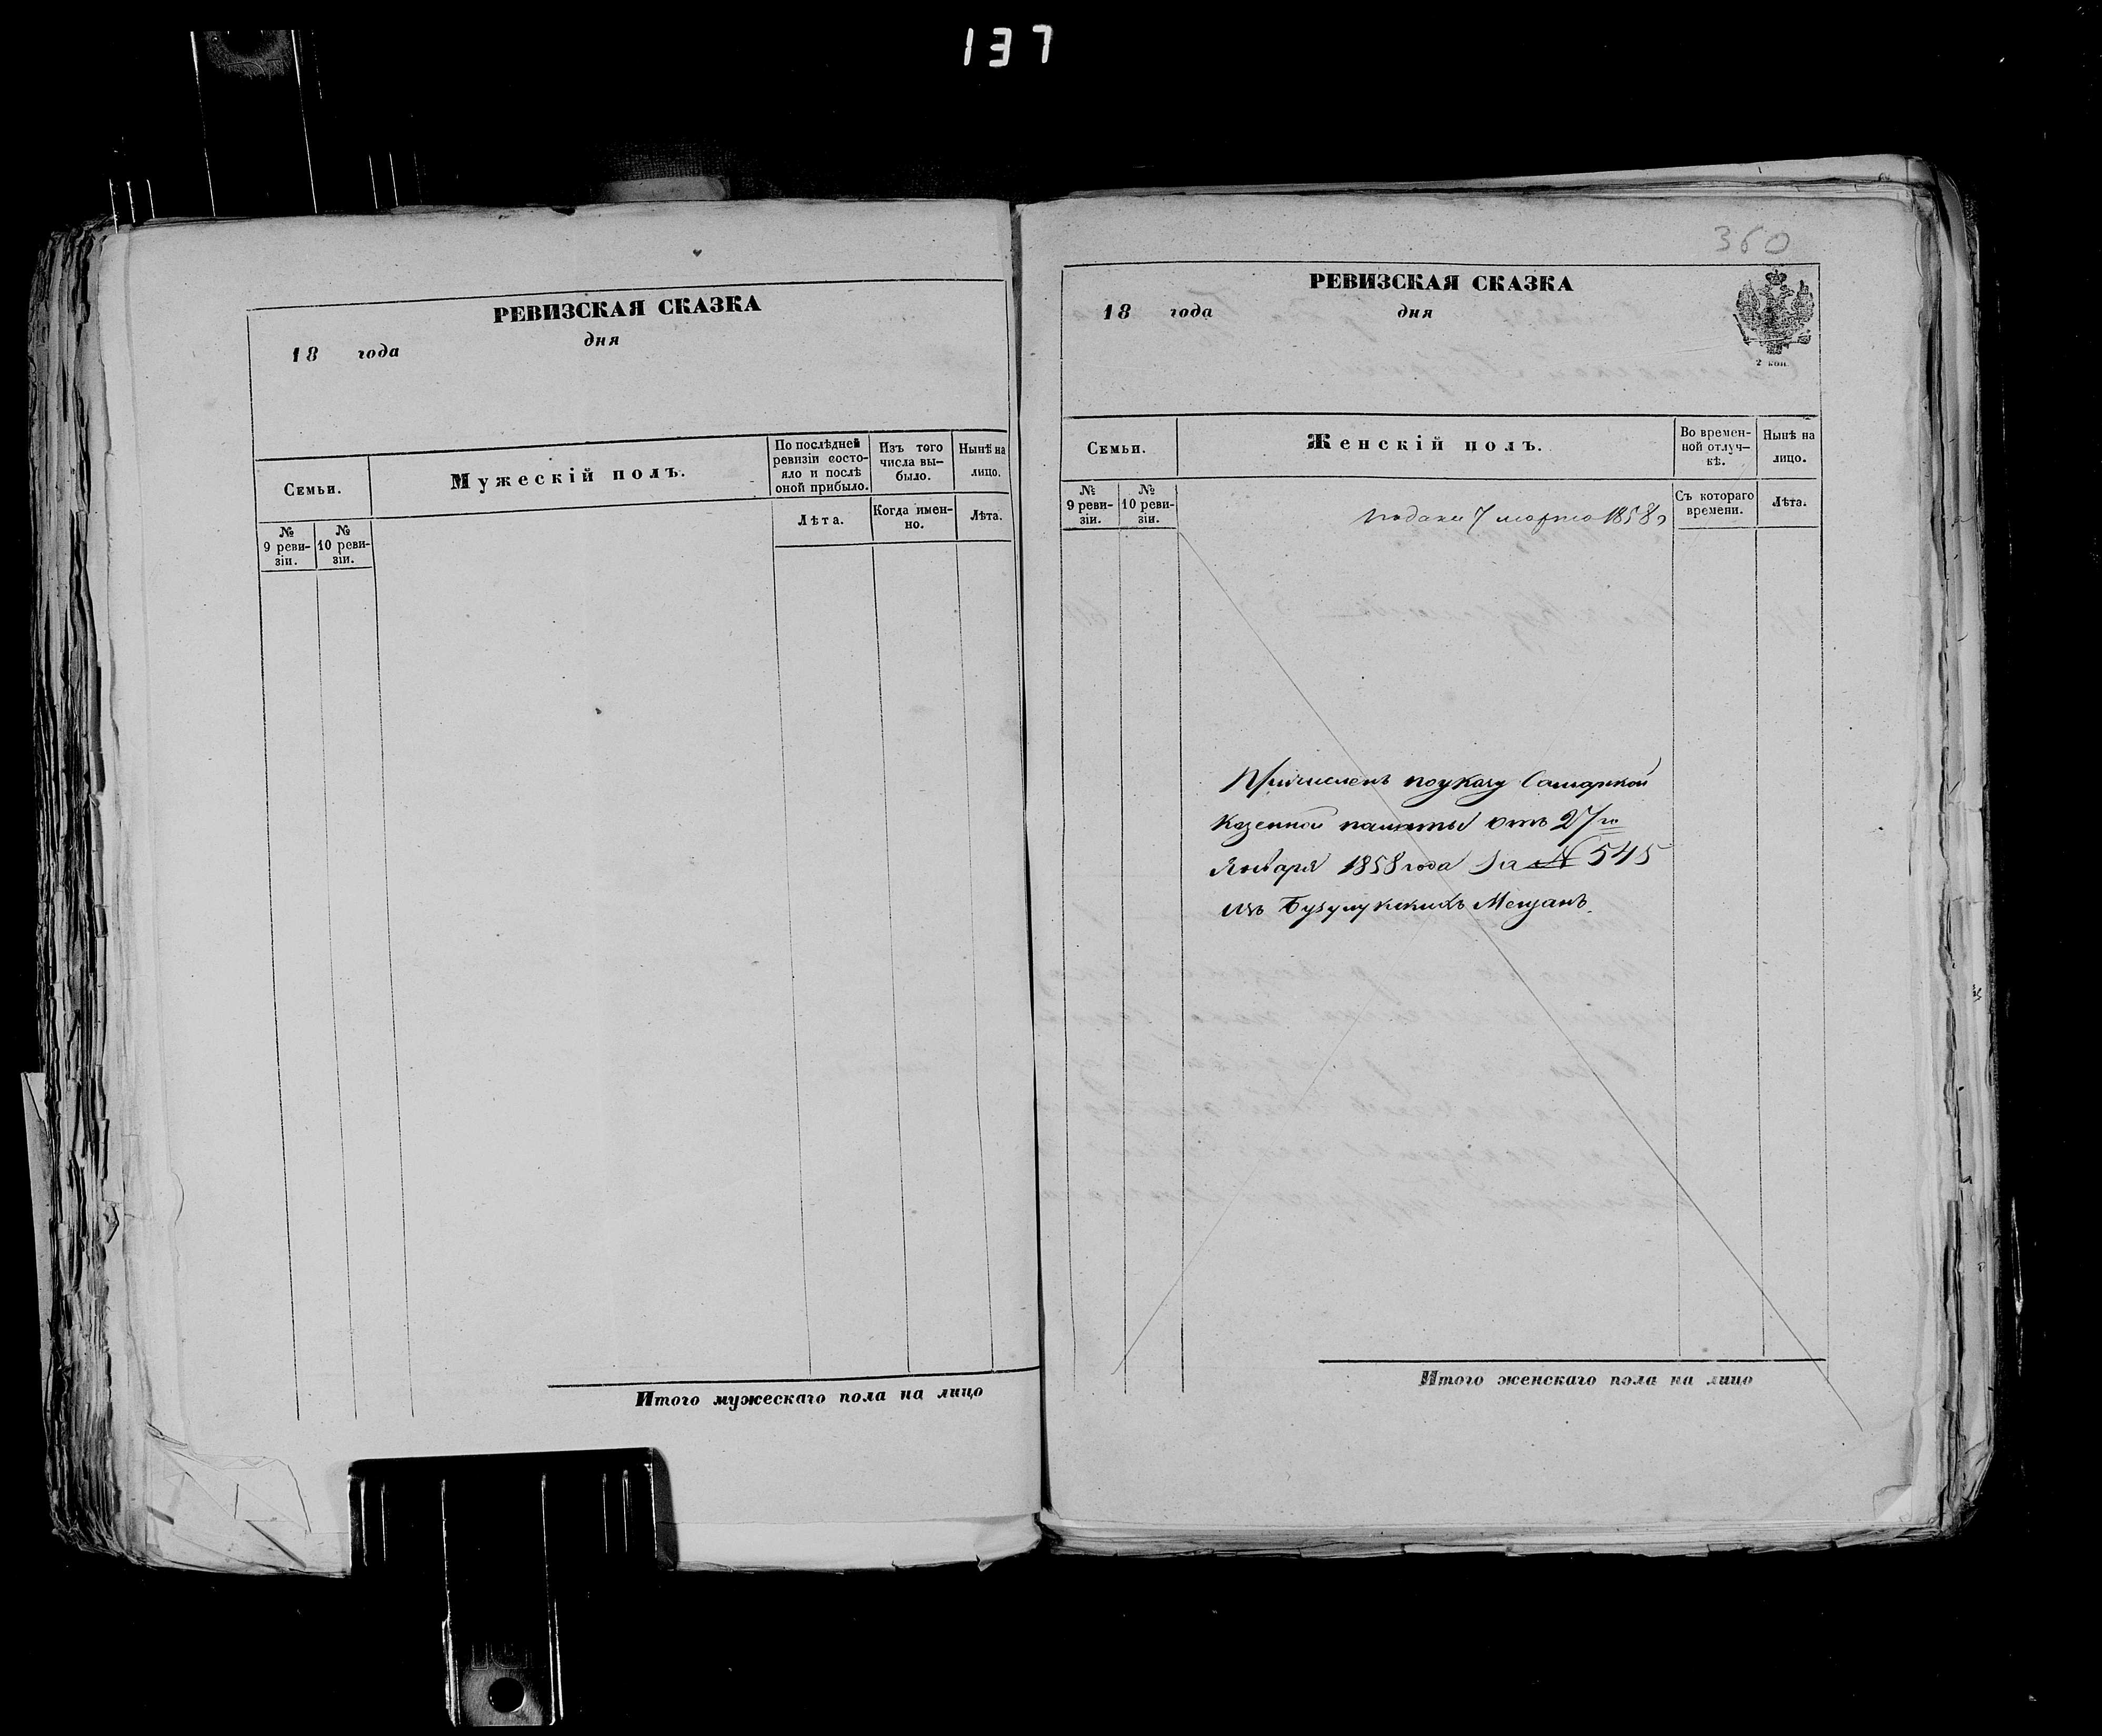 137
РЕВИЗСКАЯ СКАЗКА
18 года дня
Семьи.
Мужескій полъ.
По послѣдней ревизіи состо-
яло и послѣ оной прибыло.
Изъ того числа вы-
было.
Нынѣ на лицо.
№ 9 реви-
зіи.
№ 10 реви-
зіи.
Лѣта.
Когда имен-
но.
Лѣта.
Итого мужескаго пола на лицо
360
РЕВИЗСКАЯ СКАЗКА
18 года дня
2 коп.
Семьи.
Женскій полъ.
Во времен-
ной отлуч-
кѣ.
Нынѣ на лицо.
№ 9 реви-
зіи.
№ 10 реви-
зіи.
Съ котораго времени.
Лѣта.
подана 7 марта 1858 г
Причисленъ по указу Самарской
Казенной палаты отъ 27го
Января 1858 года за № 545
изъ Бузулукскихъ Мещанъ.
Итого женскаго пола на лицо